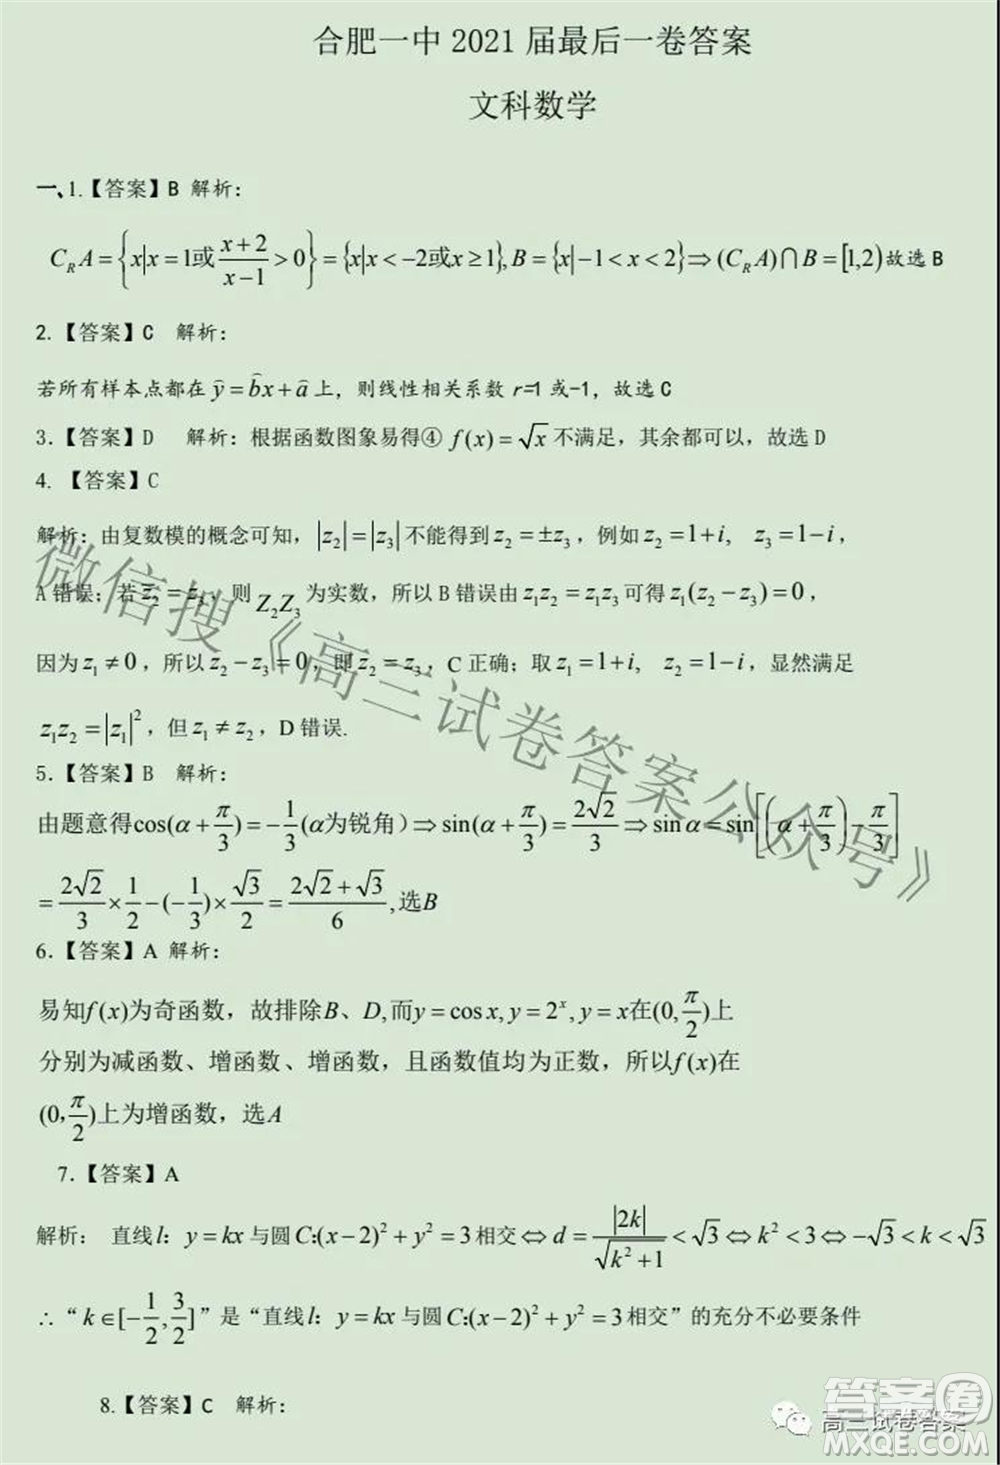 合肥一中 2021 届最后一卷答案
文科数学
一、1.【答案】B 解析：
C_R A = {x|x=1或(x+2)/(x-1)>0} = {x|x<-2或x≥1}, B={x|-1<x<2} ⇒ (C_R A)∩B=[1,2)故选 B
2.【答案】C 解析：
若所有样本点都在 ŷ=b̂x+â 上，则线性相关系数 r=1 或-1，故选 C
3.【答案】D 解析：根据函数图象易得④ f(x)=√x 不满足，其余都可以，故选 D
4. 【答案】C
解析：由复数模的概念可知，|z₂|=|z₃|不能得到z₂=±z₃，例如z₂=1+i, z₃=1-i，
A 错误；若z₂=z₃，则 Z₂Z₃ 为实数，所以 B 错误由z₁z₂=z₁z₃可得z₁(z₂-z₃)=0，
因为z₁≠0，所以z₂-z₃=0，即z₂=z₃，C 正确；取z₁=1+i, z₂=1-i，显然满足
z₁z₂=|z₁|²，但z₁≠z₂，D 错误.
5.【答案】B 解析：
由题意得cos(α+π/3)=-1/3(α为锐角)⇒sin(α+π/3)=2√2/3⇒sinα=sin[(α+π/3)-π/3]
=2√2/3×1/2-(-1/3)×√3/2=(2√2+√3)/6,选B
6.【答案】A 解析：
易知f(x)为奇函数，故排除B、D,而y=cosx,y=2^x,y=x在(0,π/2)上
分别为减函数、增函数、增函数，且函数值均为正数，所以f(x)在
(0,π/2)上为增函数，选A
7.【答案】A
解析： 直线l：y=kx与圆C:(x-2)²+y²=3相交⇔d=|2k|/√(k²+1)<√3⇔k²<3⇔-√3<k<√3
∴“k∈[-1/2,3/2]”是“直线l：y=kx与圆C:(x-2)²+y²=3相交”的充分不必要条件
8.【答案】C 解析：
微信搜《高三试卷答案公众号》
高三试卷答案
答案圈
MXQE.COM